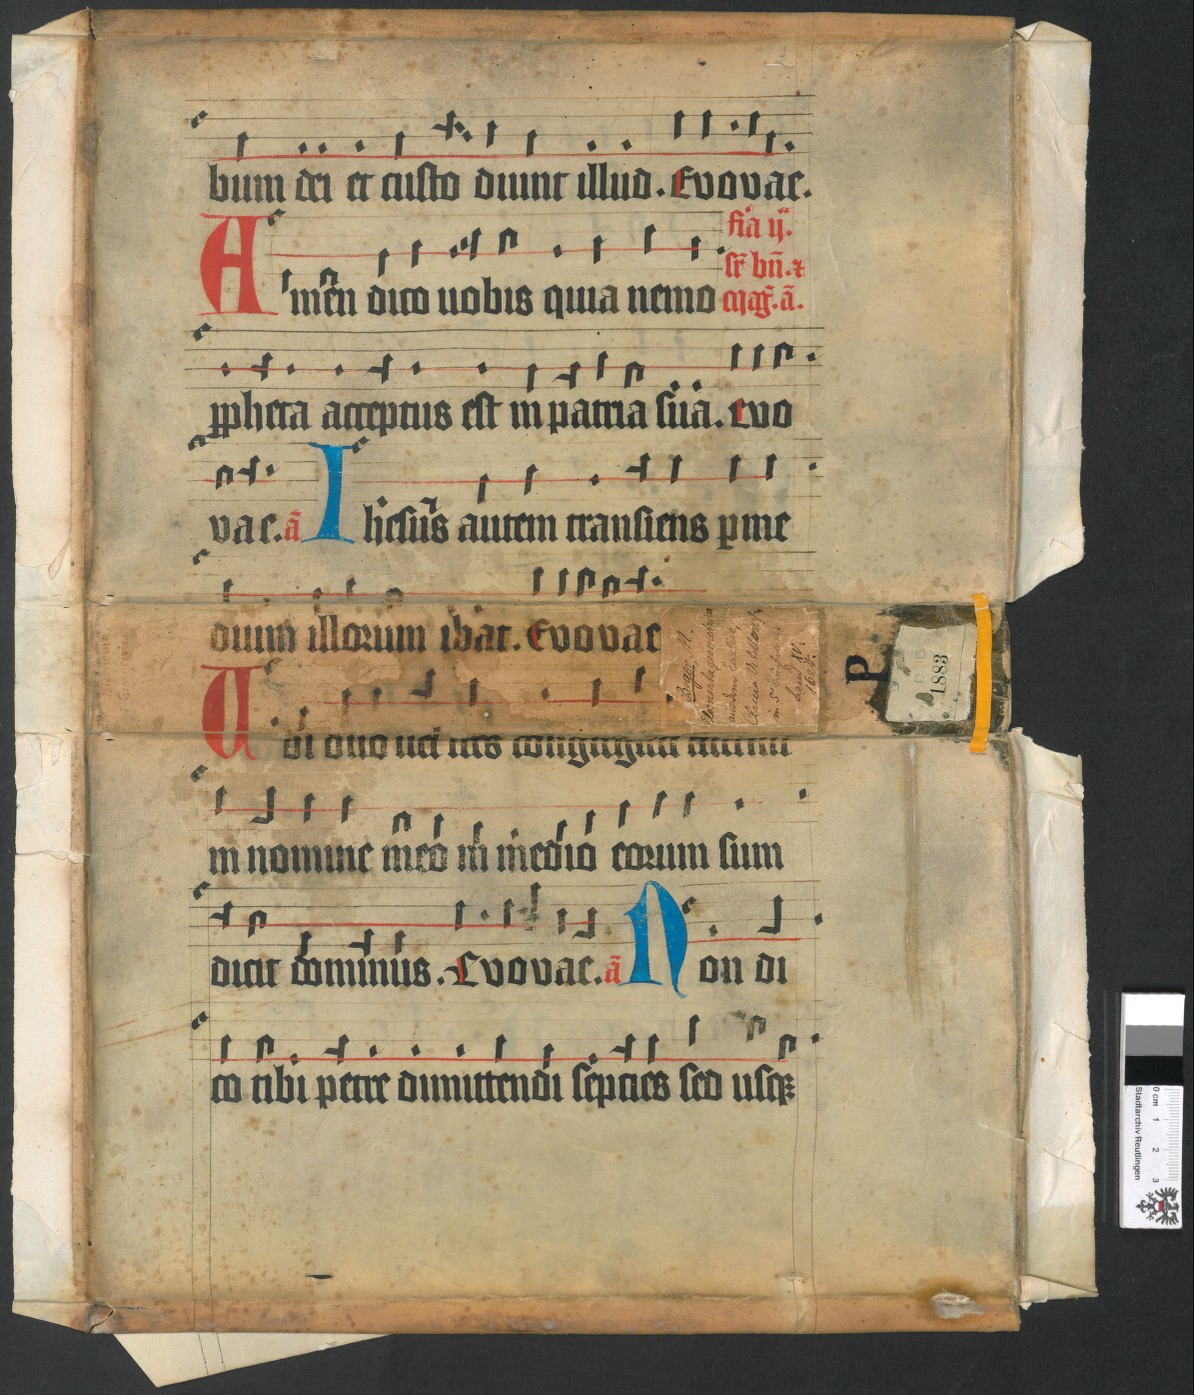 bum dei et custo diunt illud. Evovae.
fīa ij.
A
sr̄ bn̄.
men dico uobis quia nemo mag̃. ā.
ꝓpheta acceptus est in patria sua. evo
vae. ā Ihesus autem transiens ꝑ me
dium illorum ibat. Evovae
U bi duo uel tres congregati
in nomine meo in medio eorum sum
dicit dominus. Evovae. ā Non di
co tibi petre dimittendi septies sed usqꝫ
P
1883
0 cm 1 2 3
Stadtarchiv Reutlingen